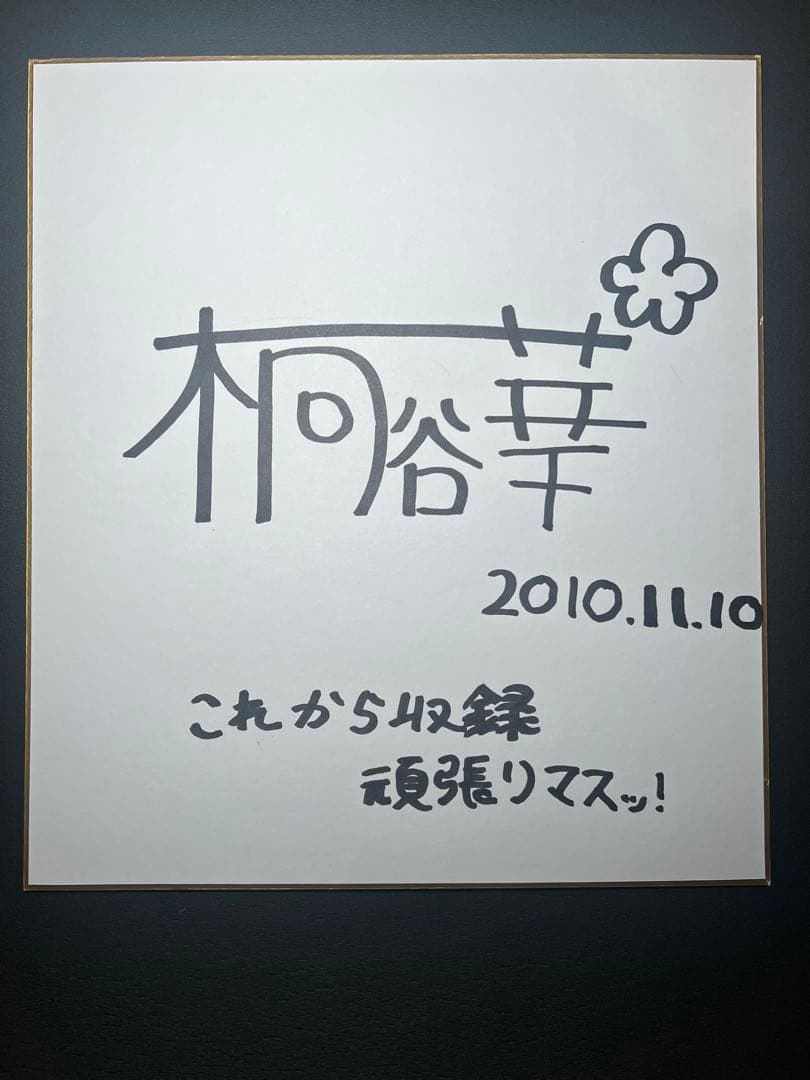 桐谷華
2010.11.10
これから収録
頑張りマスッ!